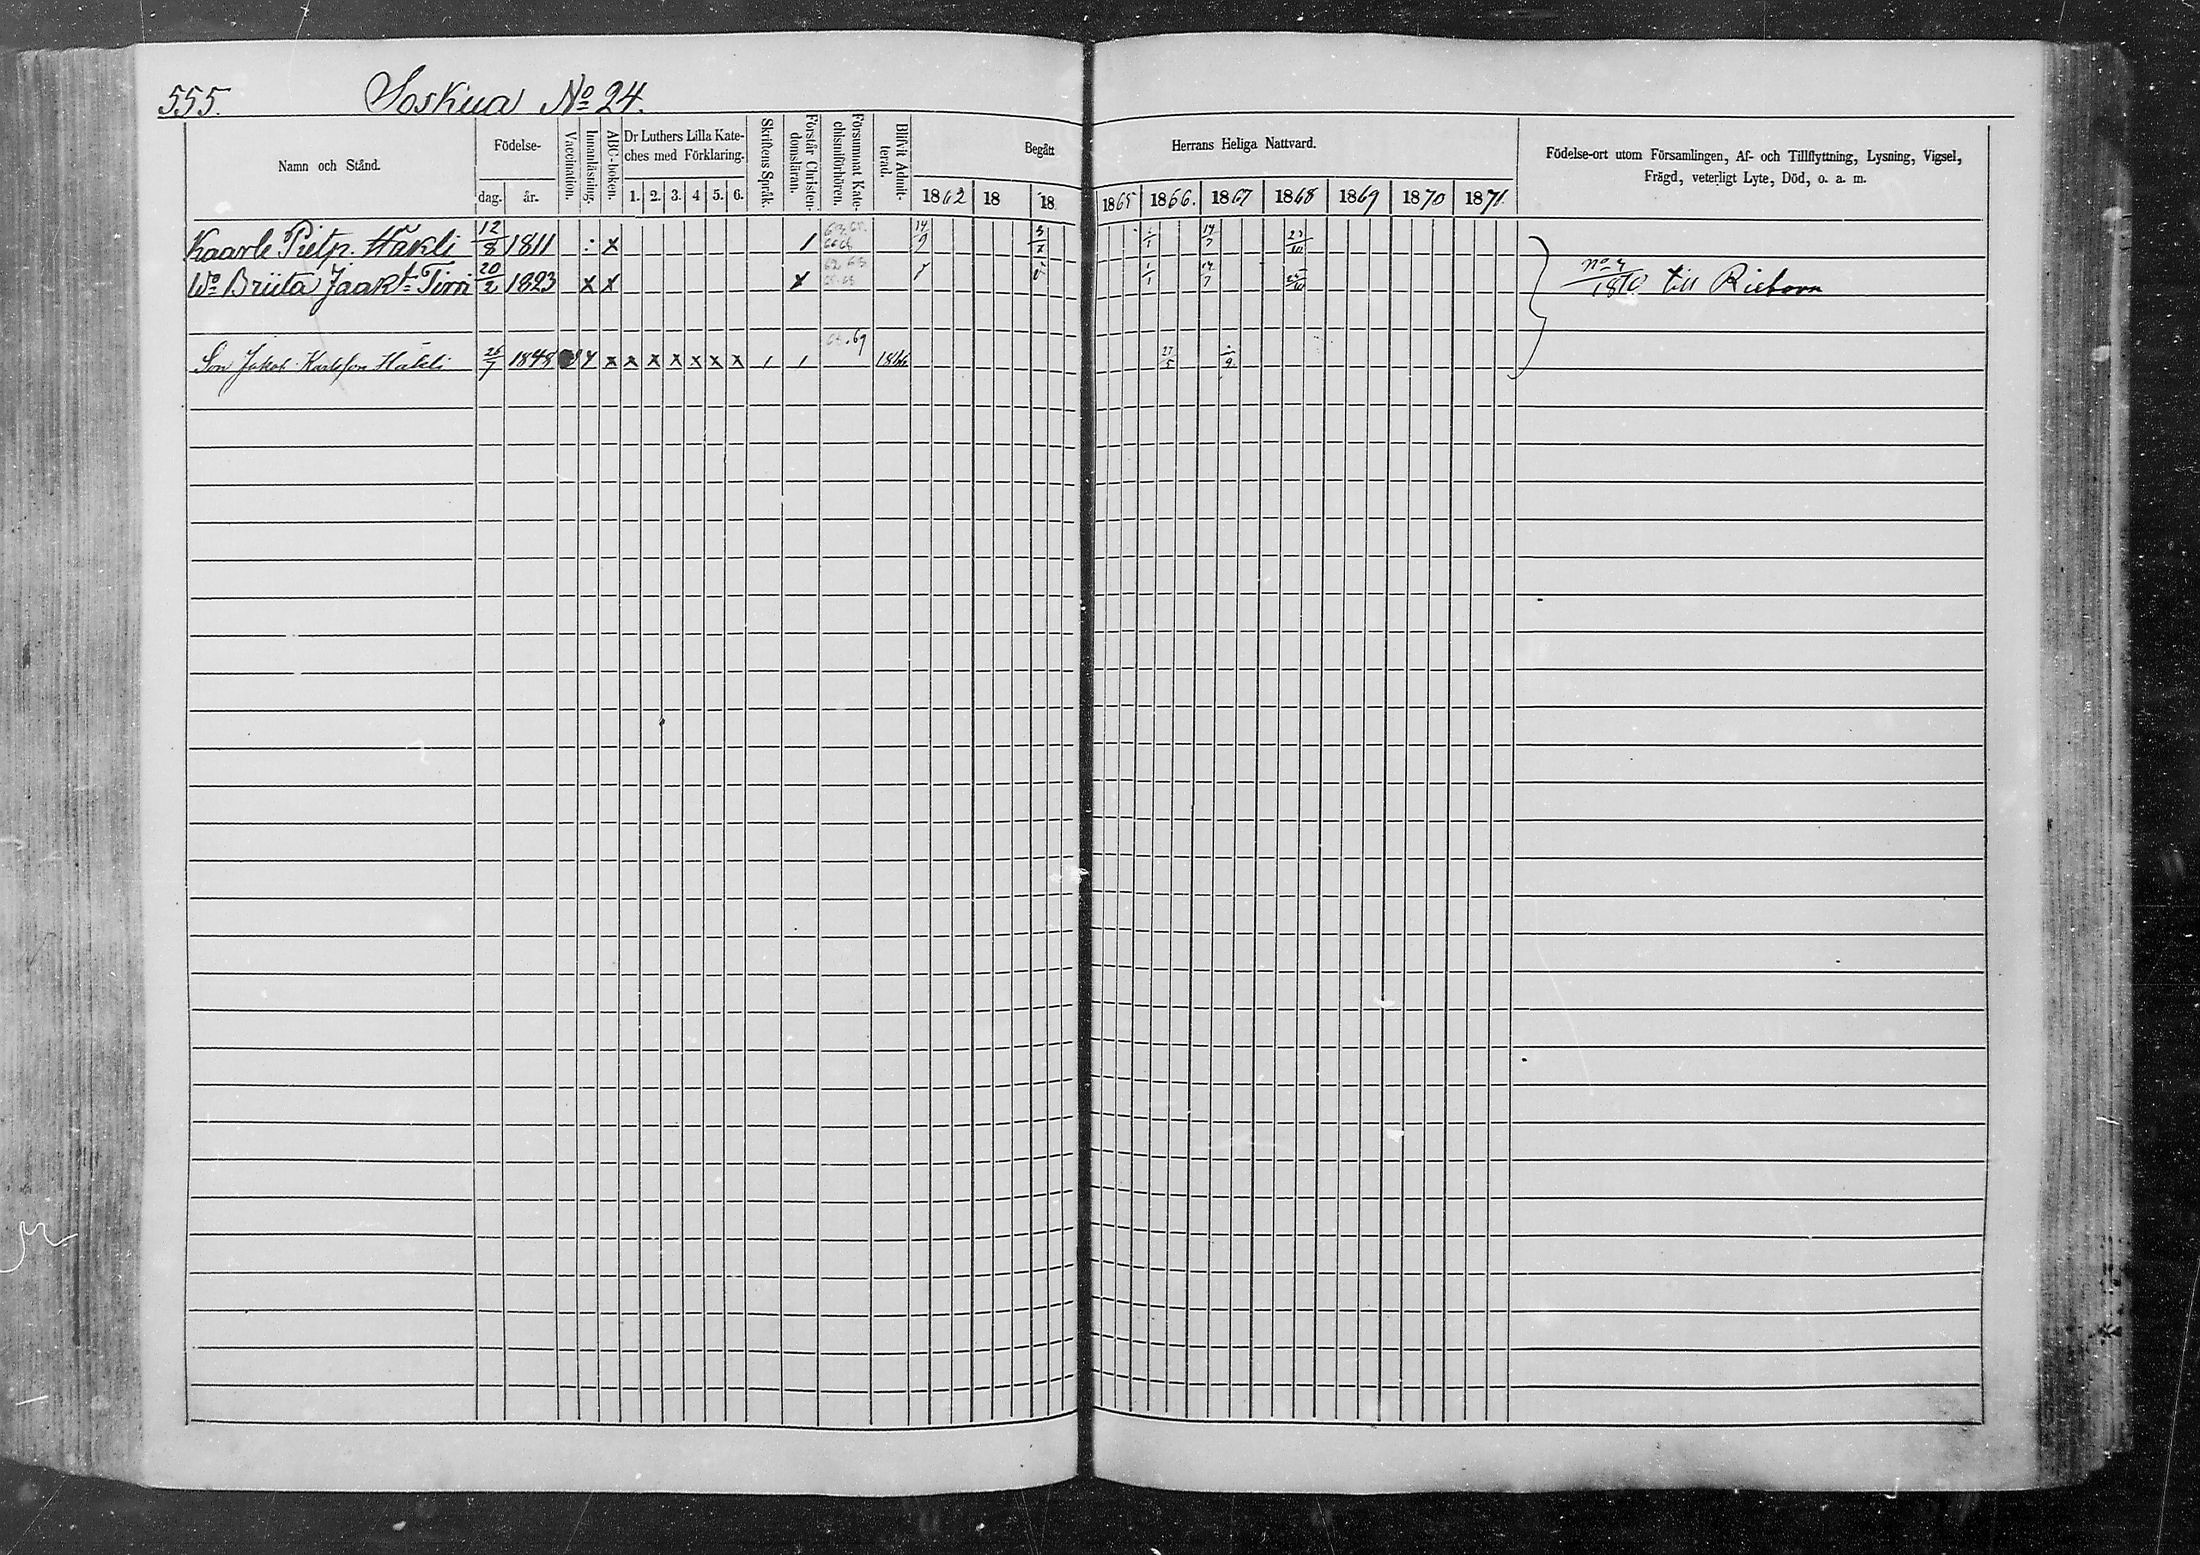 555. Soskua No 24.
Namn och Stånd.
Födelse-
dag. år.
Vaccination.
Innanläsning.
ABC-boken.
Dr Luthers Lilla Kate-
ches med Förklaring.
1. 2. 3. 4 5. 6.
Skriftens Språk.
Förstår Christen-
domsläran.
Försummat Kate-
chismiförhören.
Blifvit Admit-
terad.
Begått Herrans Heliga Nattvard.
1862 18 18 1865 1866. 1867 1868 1869 1870 1871
Födelse-ort utom Församlingen, Af- och Tillflyttning, Lysning, Vigsel,
Frägd, veterligt Lyte, Död, o. a. m.
Kaarle Pietp. Häkli 12/8 1811 x 1 14/9 14/7
Wo Briita Jaakt. Timi 20/2 1823 x x x 1/1 14/7 till
Son Jakob Karlsson Häkli 1848 x x x x x x x 1 1 69 1866 27/5